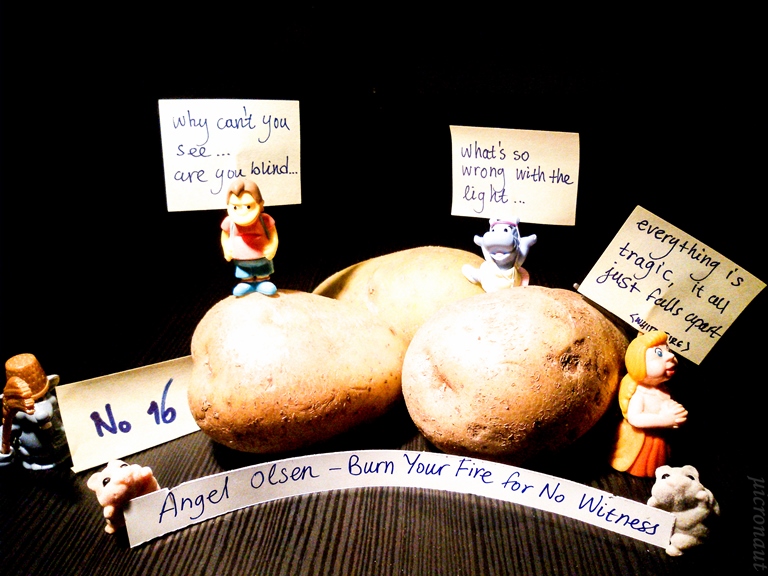 why can't you
see...
are you blind...
what's so
wrong with the
light...
everything is
tragic, it all
just falls apart
No 16
Angel Olsen – Burn Your Fire for No Witness
micronaut